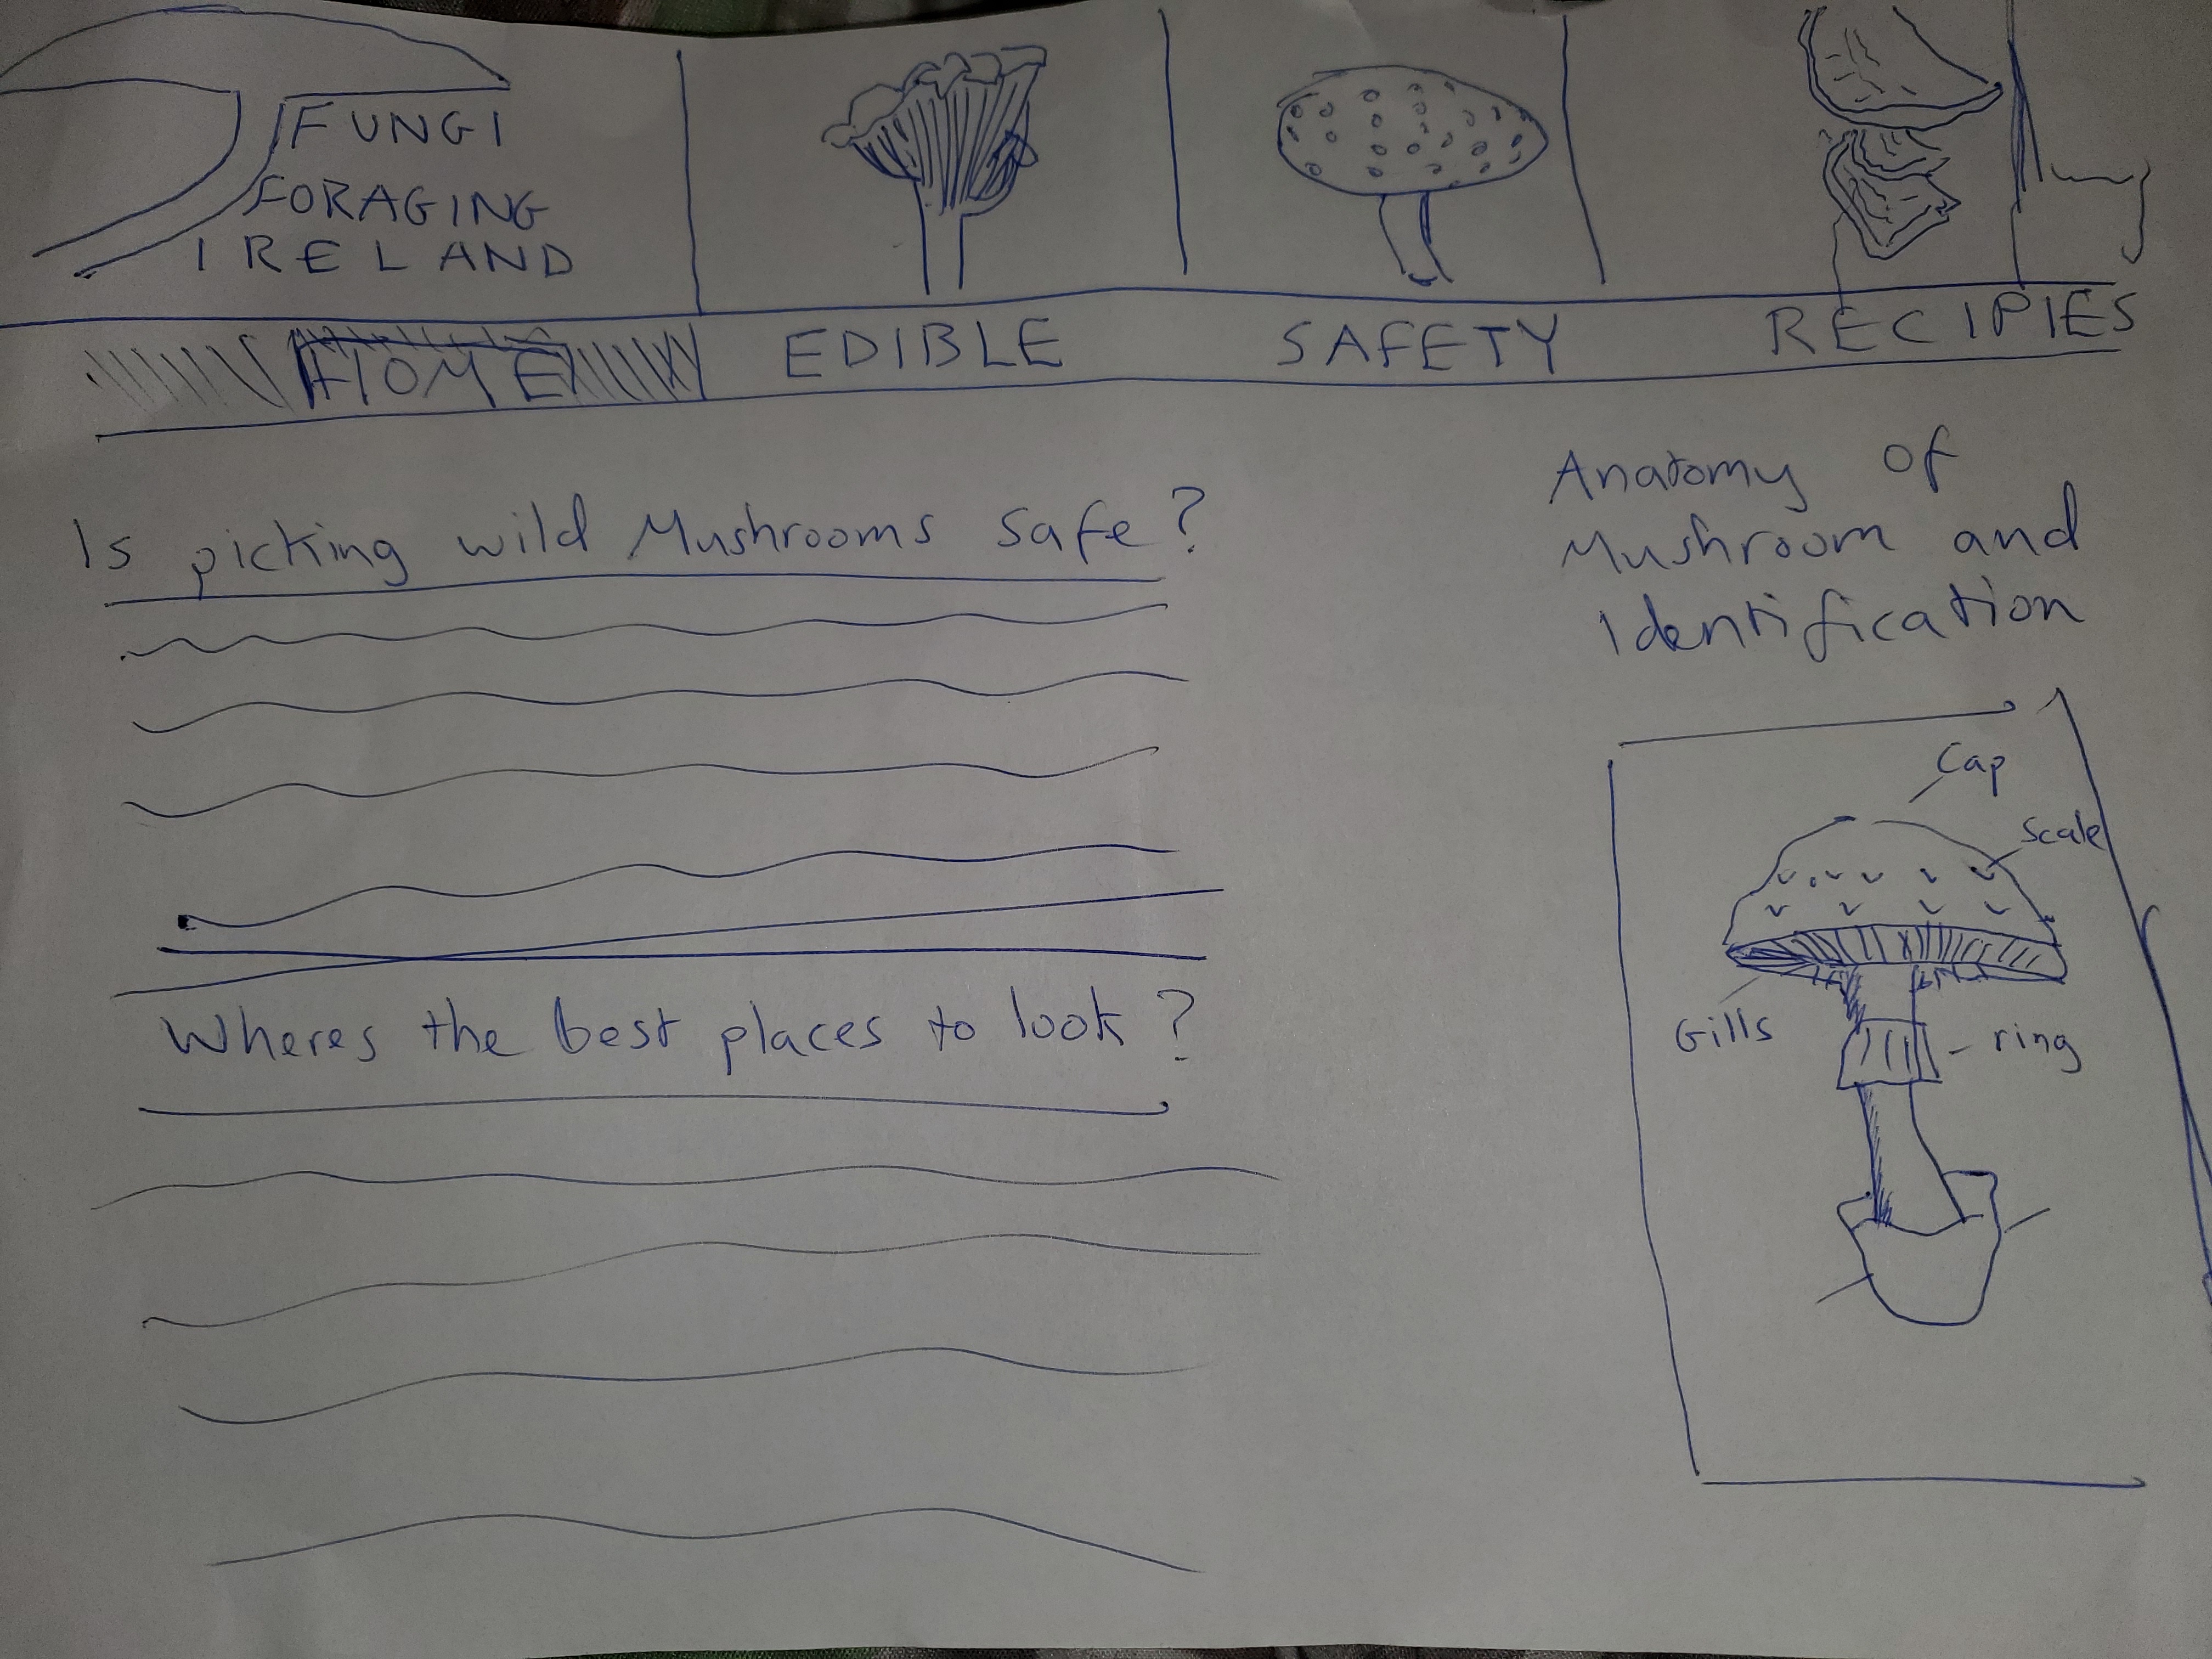 FUNGI
FORAGING
IRELAND
HOME EDIBLE SAFETY RECIPIES
Is picking wild Mushrooms safe?
Wheres the best places to look?
Anatomy of
Mushroom and
Identification
Cap
scale
Gills
ring